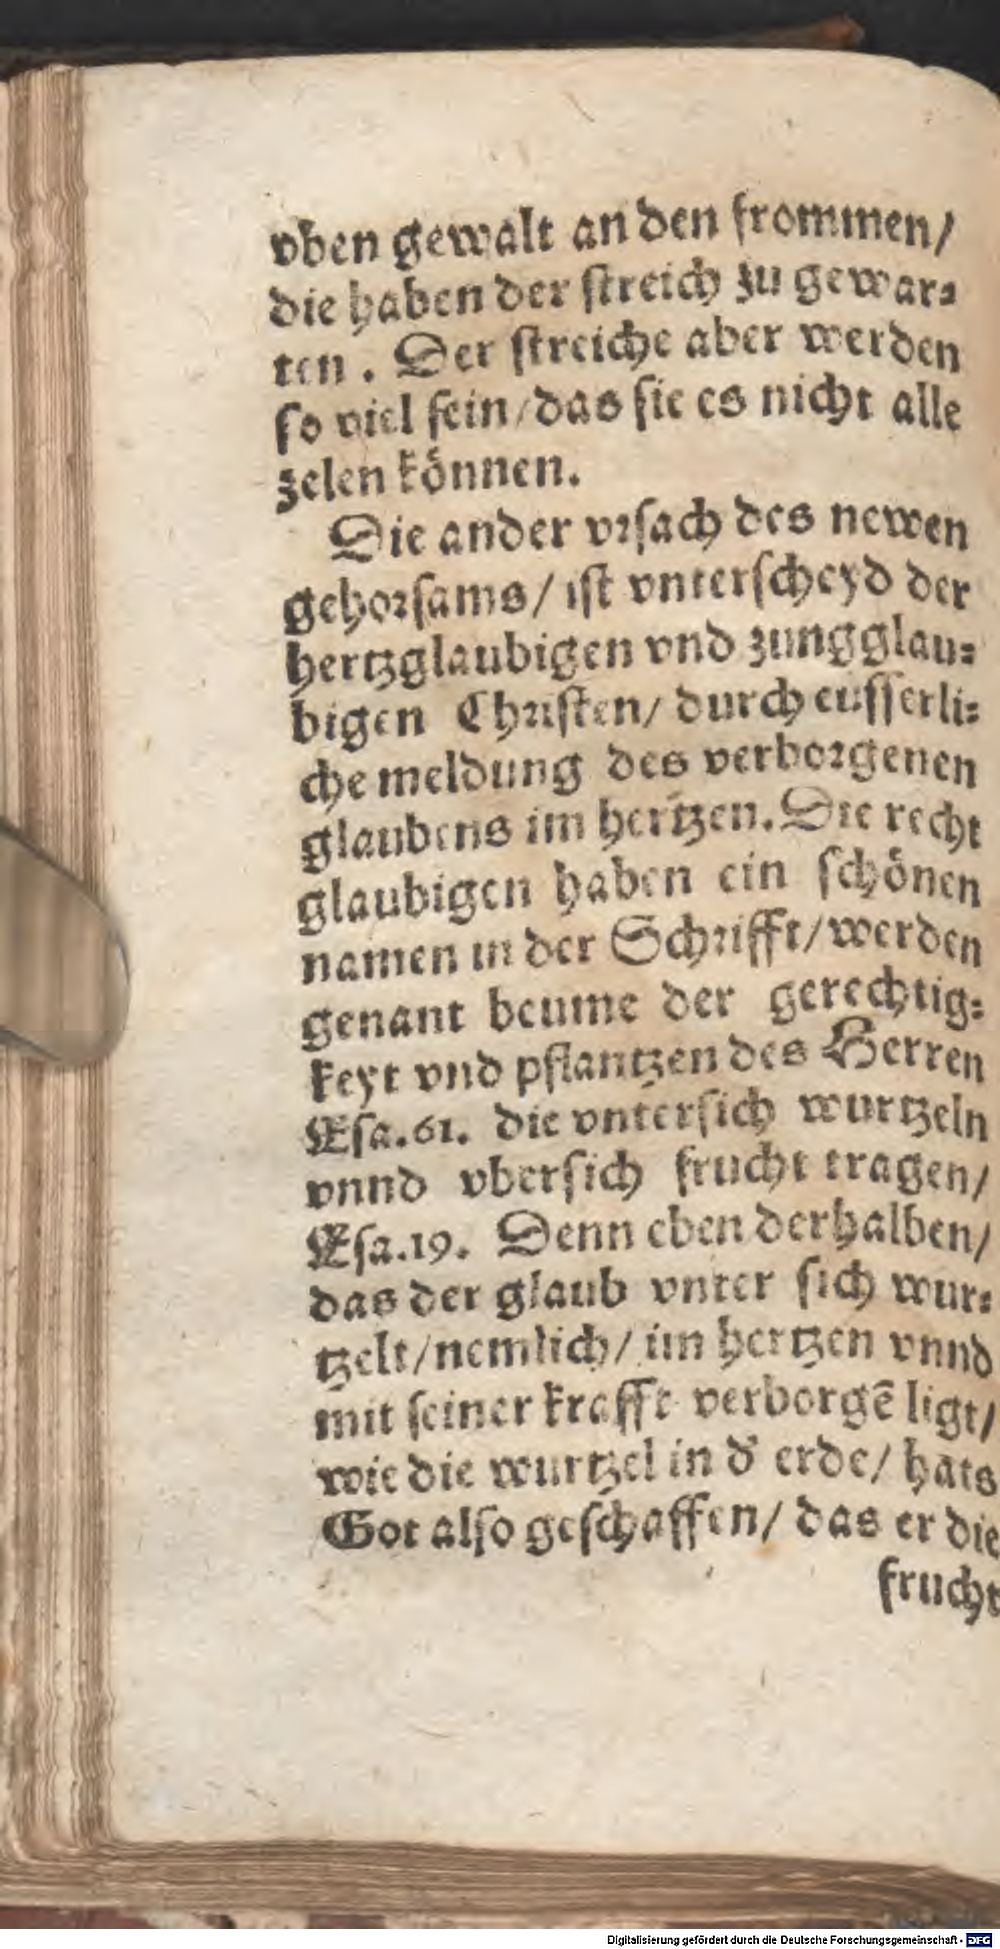 vben gewalt an den frommen/
die haben der ſtreich zu gewar⸗
ten. Der ſtreiche aber werden
ſo viel ſein/das ſie es nicht alle
zelen können.
Die ander vꝛſach des newen
gehoꝛſams/ iſt vnterſcheyd der
hertzglaubigen vnd zungglau⸗
bigen Chꝛiſten/ durch euſſerli⸗
che meldung des verboꝛgenen
glaubens im hertzen. Die recht
glaubigen haben ein ſchönen
namen in der Schꝛifft/werden
genant beume der gerechtig⸗
keyt vnd pflantzen des Herren
Eſa.61. die vnterſich wurtzeln
vnnd vberſich frucht tragen/
Eſa.19. Denn eben derhalben/
das der glaub vnter ſich wur⸗
tzelt/nemlich/ im hertzen vnnd
mit ſeiner krafft verborgē ligt/
wie die wurtzel in d' erde/ hats
Got alſo geſchaffen/ das er die
frucht
Digitalisierung gefördert durch die Deutsche Forschungsgemeinschaft - DFG